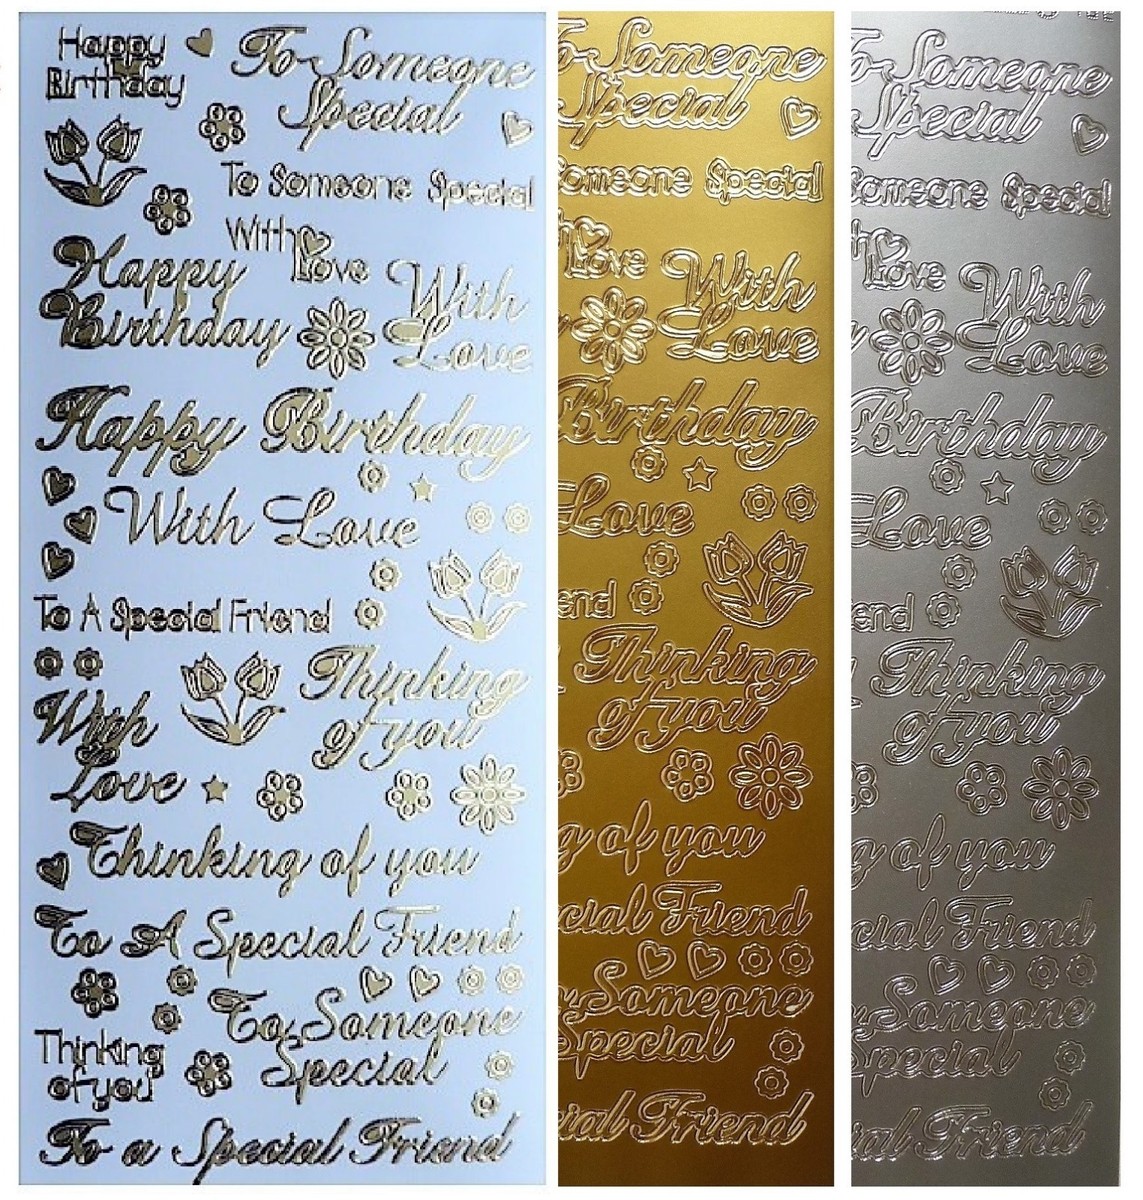 Happy
Birthday
To Someone
Special
To Someone Special
With
Love
Happy
Birthday
With
Love
Happy Birthday
With Love
To A Special Friend
Thinking
of you
With
Love
Thinking of you
To A Special Friend
To Someone
Special
Thinking
of you
To a Special Friend
To Someone
Special
Someone Special
Love
With
Love
Birthday
Love
end
Thinking
of you
g of you
cial Friend
Someone
Special
ial Friend
To Someone
Special
Someone Special
th
Love
With
Love
y
Birthday
Love
end
Thinking
of you
g of you
cial Friend
Someone
Special
ial Friend